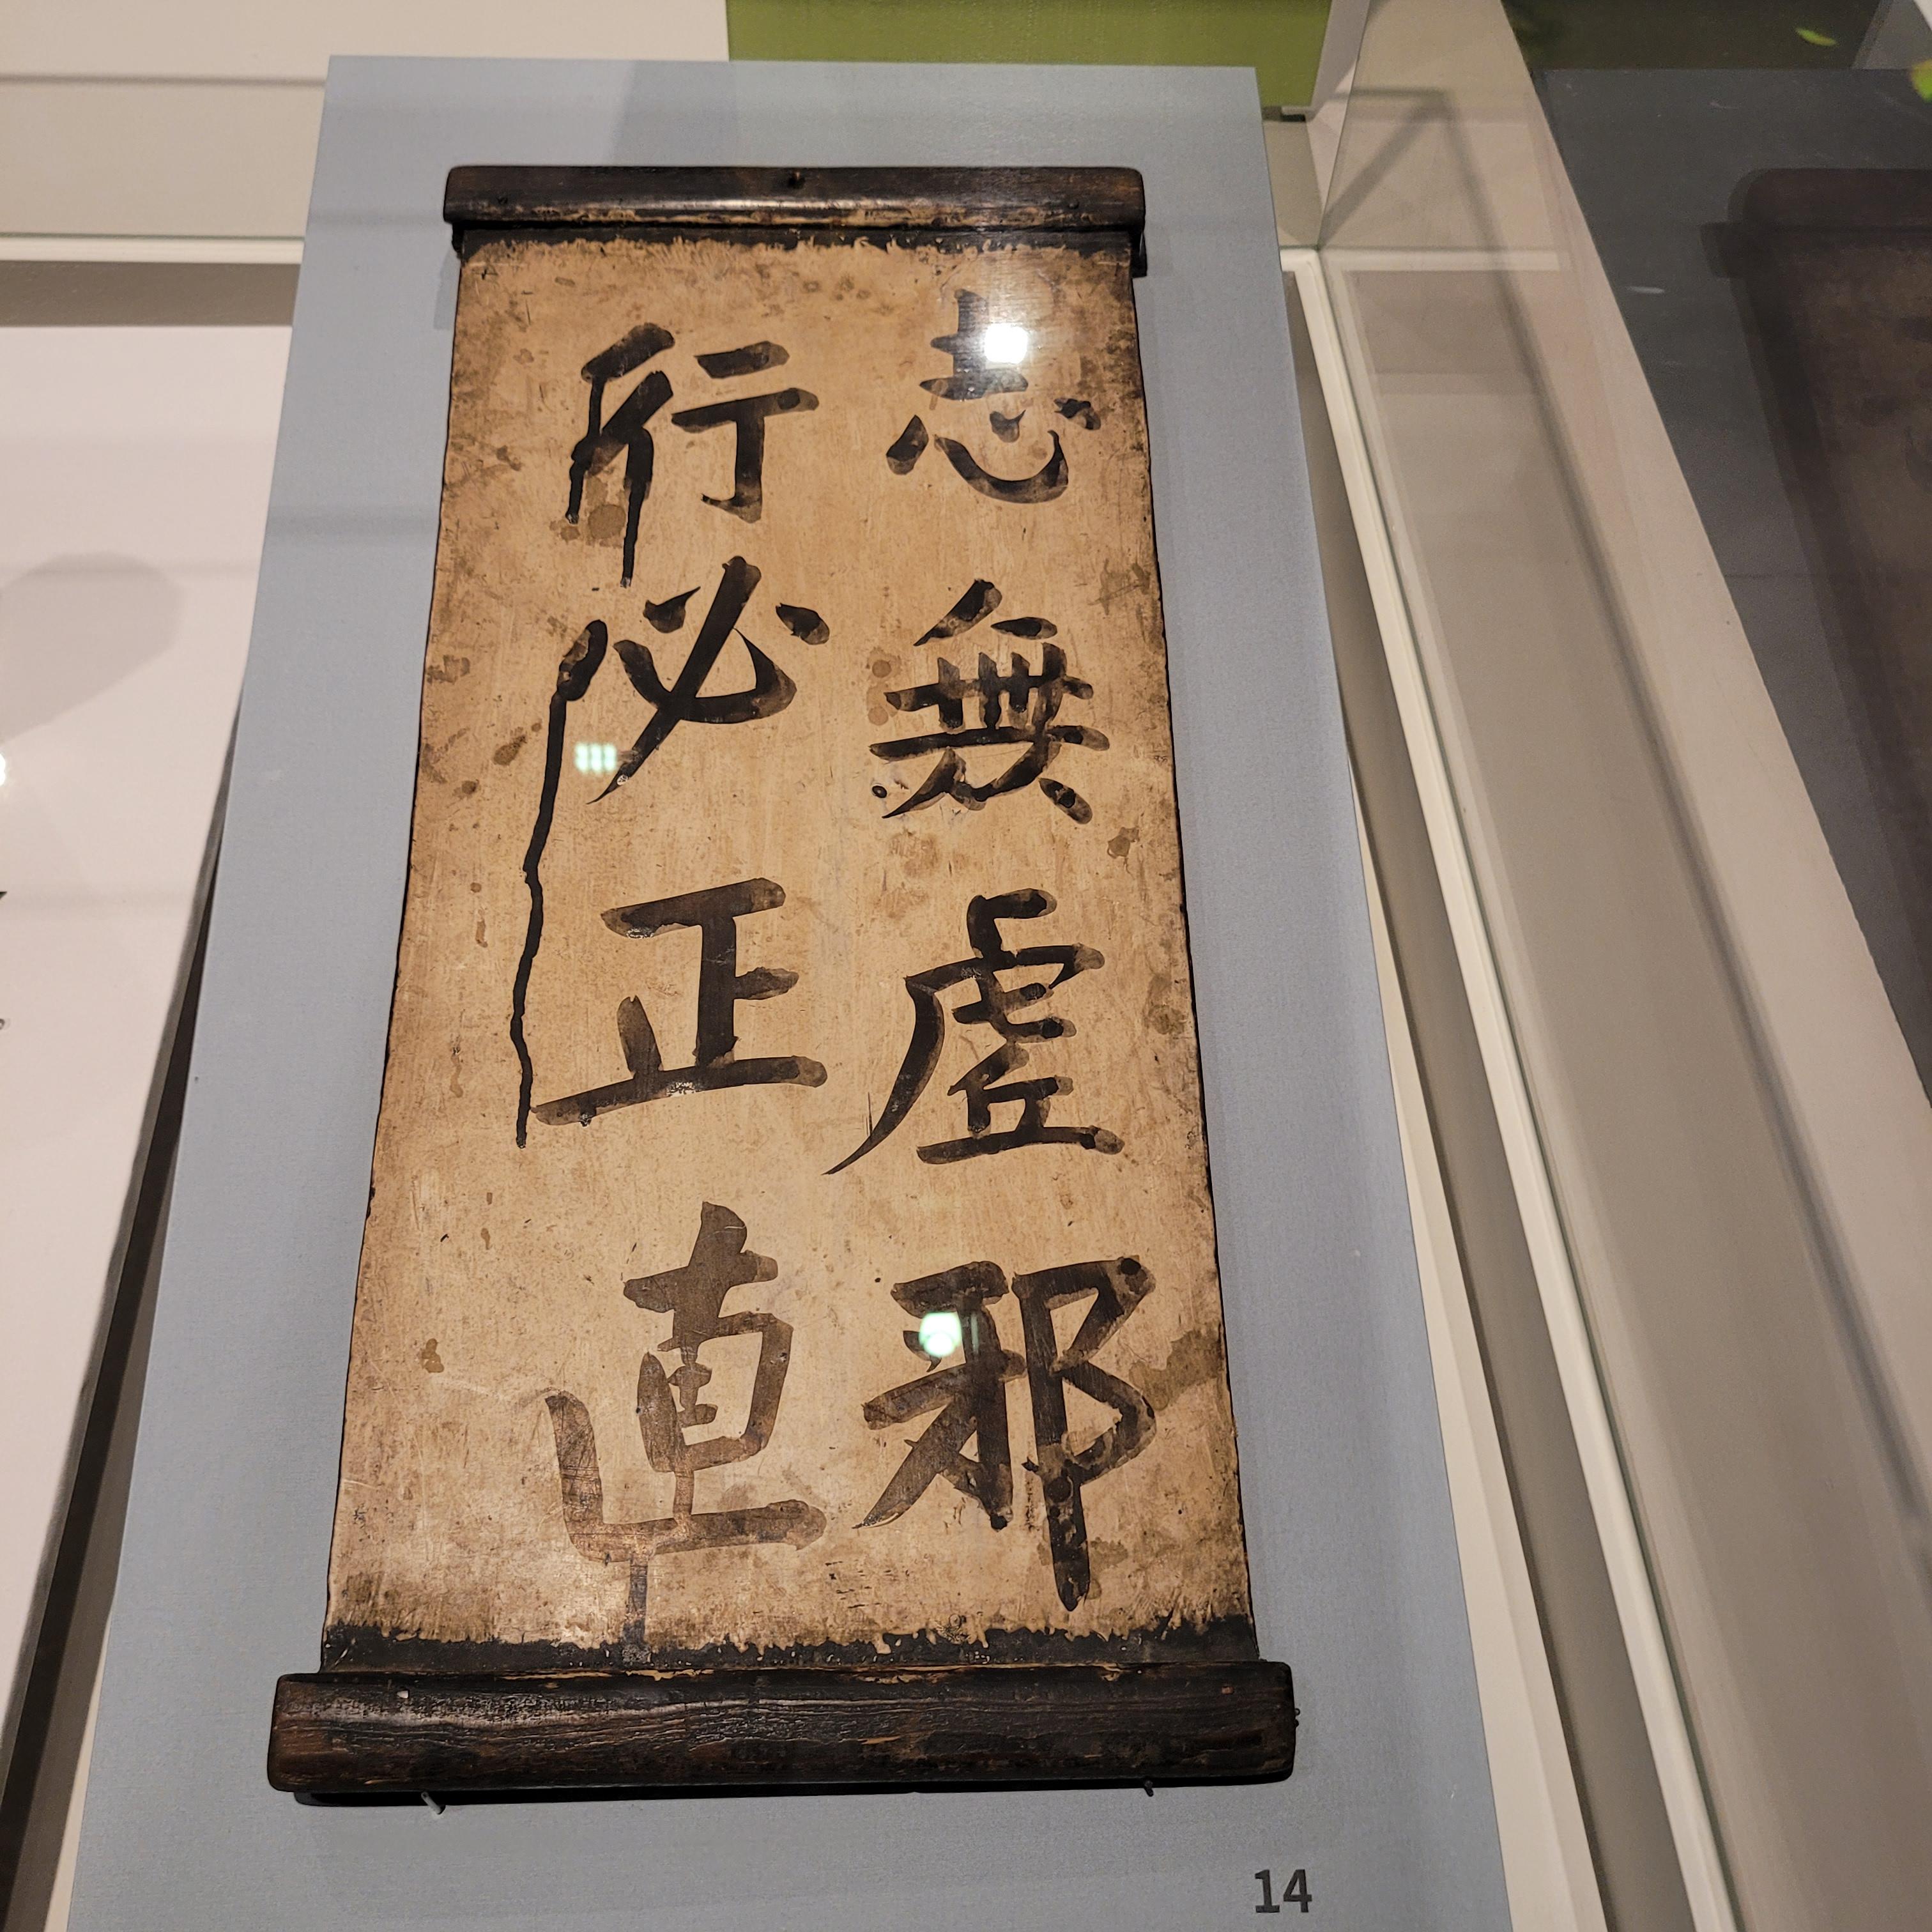 志無虛邪
行必正直
14